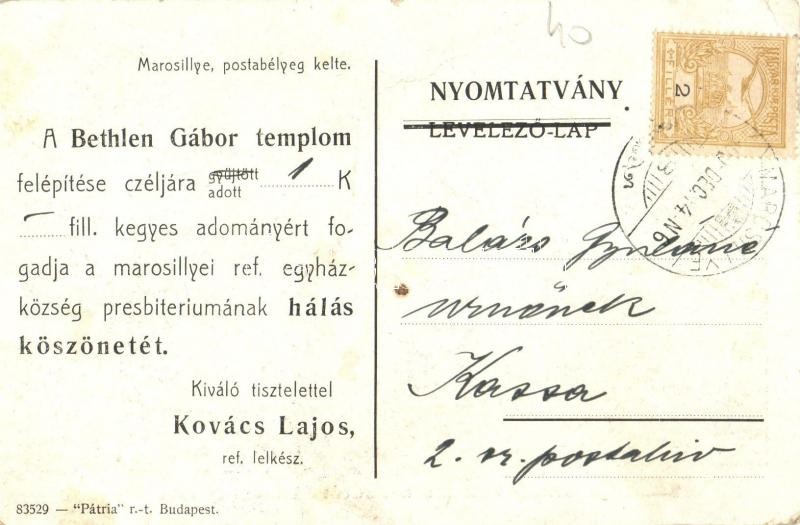 40
Marosillye, postabélyeg kelte.
A Bethlen Gábor templom
felépítése czéljára gyüjtött adott 1 K
— fill. kegyes adományért fo-
gadja a marosillyei ref. egyház-
község presbiteriumának hálás
köszönetét.
Kiváló tisztelettel
Kovács Lajos,
ref. lelkész.
83529 — "Pátria" r.-t. Budapest.
NYOMTATVÁNY.
LEVELEZŐ-LAP
FILLÉR
2
MAROSILLYE
DEC. 14. N6
Balázs Gyuláné
urnőnek
Kassa
2. sz. postahiv